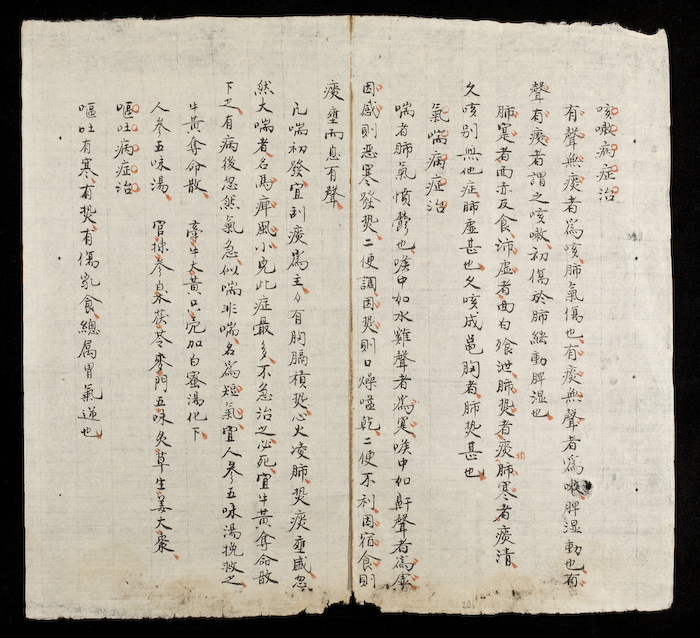 咳嗽病症治
有聲無痰者為咳肺氣傷也有痰無聲者為嗽脾濕動也有
聲有痰者謂之咳嗽初傷於肺繼動脾湿也
肺寔者面赤反食沛虚者面白飧泄肺热者痰稠肺寒者痰清
久咳别無他症肺虚甚也久咳成龟胸者肺热甚也
氣喘病症治
喘者肺氣憤鬱也喉中如水雞聲者為寔喉中如鼾聲者為虚
因感則恶寒發热二便調因热則口燥嗌乾二便不利因宿食則
痰壅而息有聲
凡喘初發宜刮痰為主々有胸膈積热心火凌肺热痰壅盛忽
然大喘者名馬脾風小兒此症最多不急治之必死宜牛黄奪命散
下之有病後忽然氣急似喘非喘名為短氣宜人参五味湯挽救之
牛黄奪命散 牽牛大黄只壳加白蜜湯化下
人参五味湯 官揀参白朮茯苓麥門五味炙草生姜大棗
嘔吐病症治
嘔吐有寒有热有傷乳食總属胃氣逆也